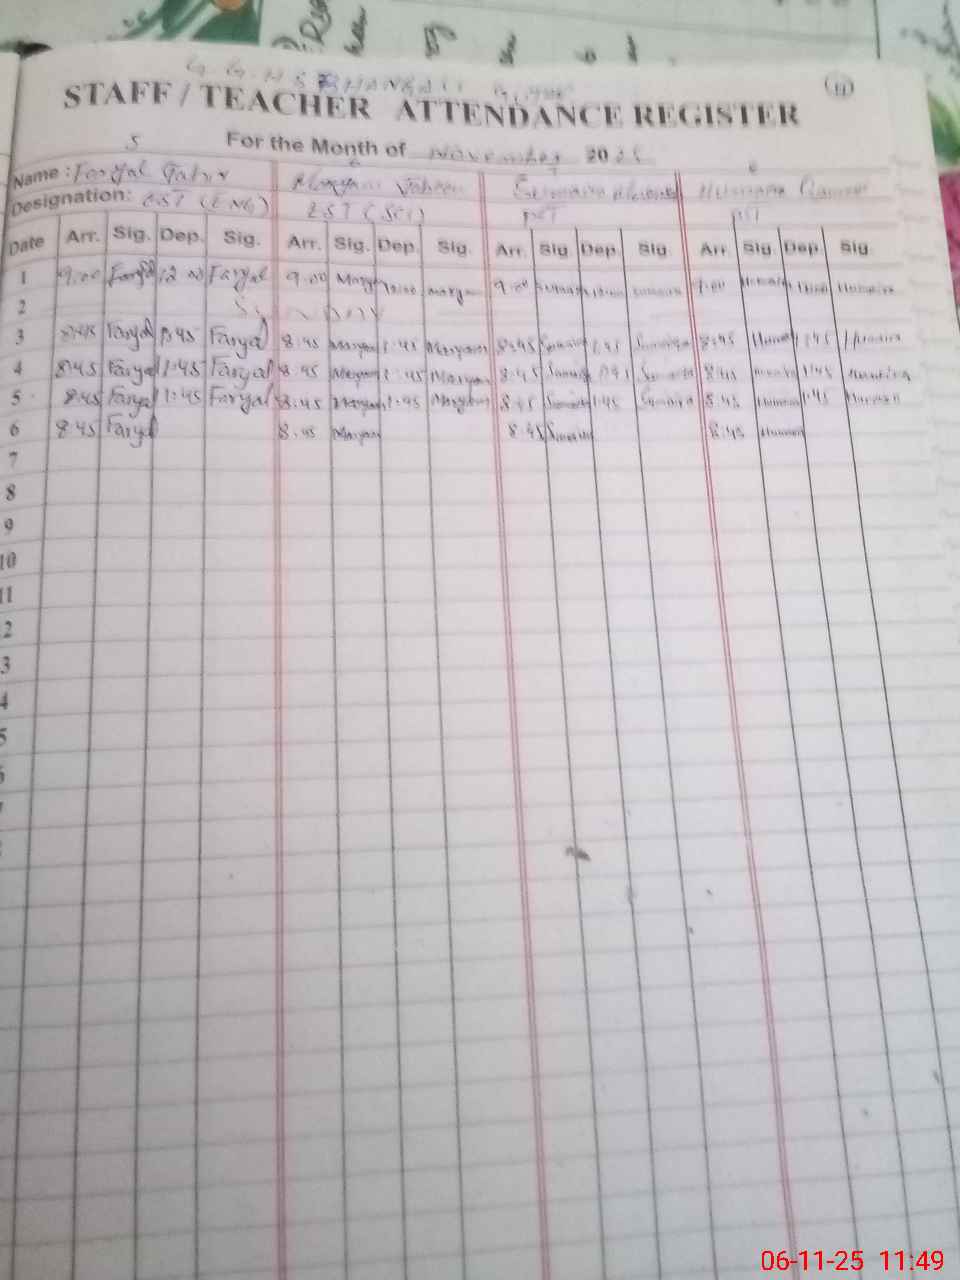 G.G.H.S
STAFF / TEACHER ATTENDANCE REGISTER
For the Month of November 2025
5 6 7 8
Name : Faryal Maryam Sumaira Humaira
Designation: EST (ENG) EST (SCI) PST PST
Date Arr. Sig. Dep. Sig. Arr. Sig. Dep. Sig. Arr. Sig. Dep. Sig. Arr. Sig. Dep. Sig.
1 9.00 Faryal 12.00 Faryal 9.00 Maryam 12:00 Maryam 9.00 Sumaira 12:00 Sumaira 9.00 Humaira 12:00 Humaira
2 Sunday
3 8:45 Faryal 1:45 Faryal 8.45 Maryam 1:45 Maryam 8:45 Sumaira 1:45 Sumaira 8:45 Humaira 1:45 Humaira
4 8:45 Faryal 1:45 Faryal 8.45 Maryam 1:45 Maryam 8:45 Sumaira 1:45 Sumaira 8:45 Humaira 1:45 Humaira
5 8:45 Faryal 1:45 Faryal 8.45 Maryam 1:45 Maryam 8:45 Sumaira 1:45 Sumaira 8:45 Humaira 1:45 Humaira
6 8:45 Faryal 8.45 Maryam 8:45 Sumaira 8:45 Humaira
7
8
9
10
11
2
3
4
5
06-11-25 11:49